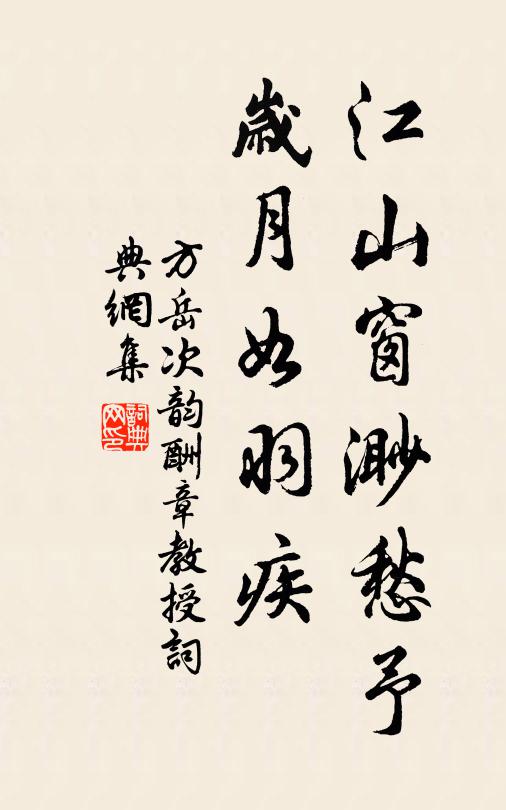 江山窗渺愁予
歲月如羽疾
方岳次韵酬章教授詞
典網集
詞典网印